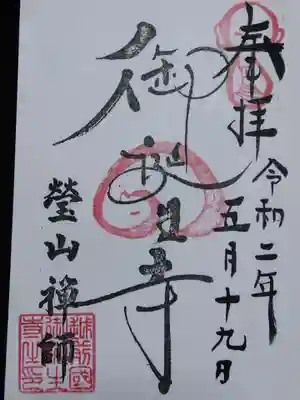 奉拝
令和二年
五月十九日
御誕生寺
瑩山禅師